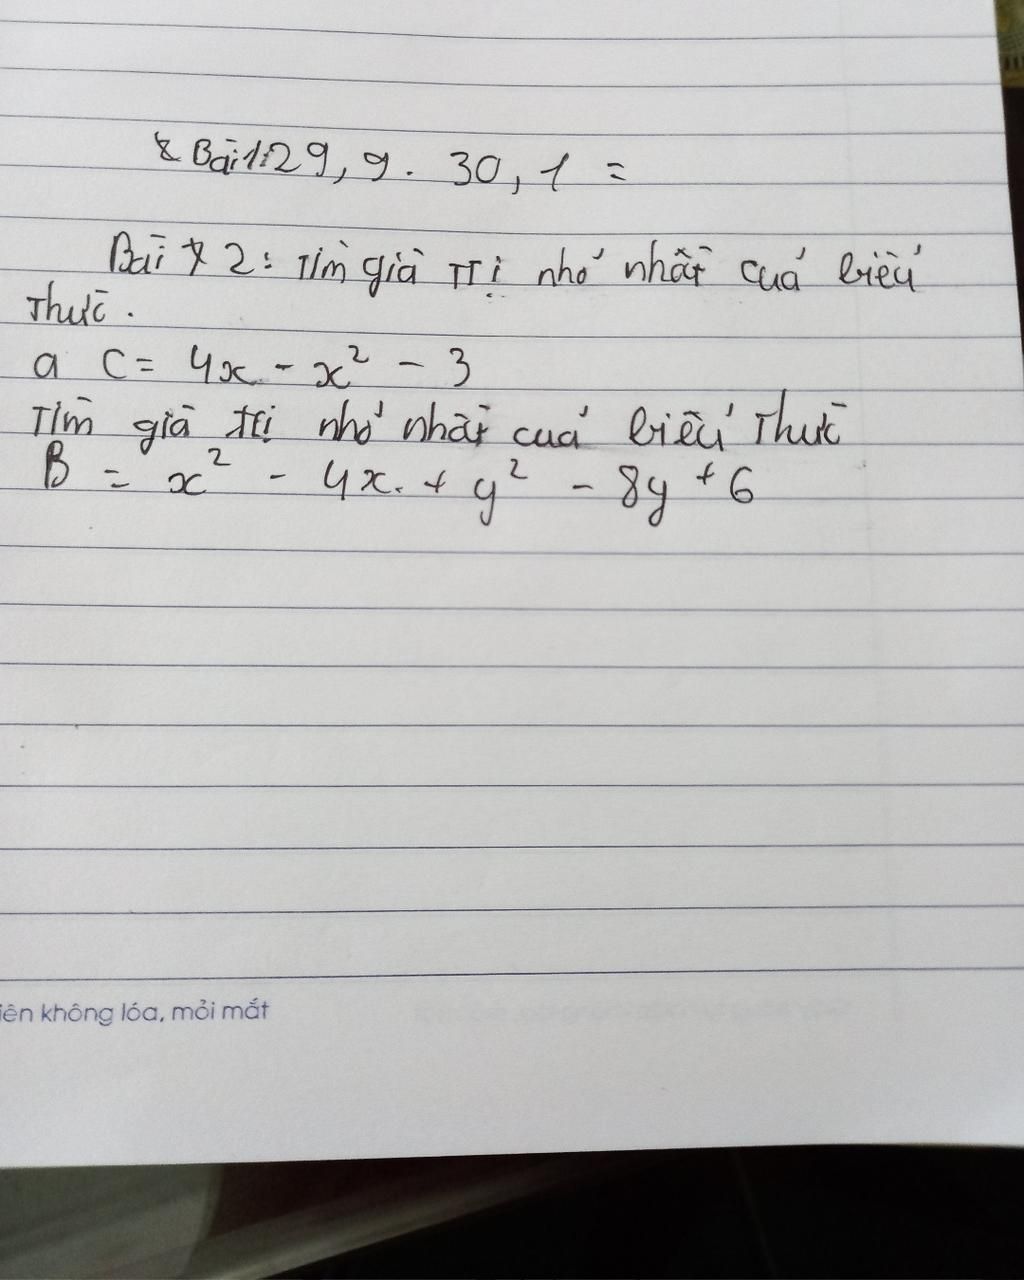 * Bài 1: 29,9 . 30,1 =
Bài * 2: Tìm giá trị nhỏ nhất của biểu
thức.
a C = 4x - x² - 3
Tìm giá trị nhỏ nhất của biểu thức
B = x² - 4x + y² - 8y + 6
iên không lóa, mỏi mắt